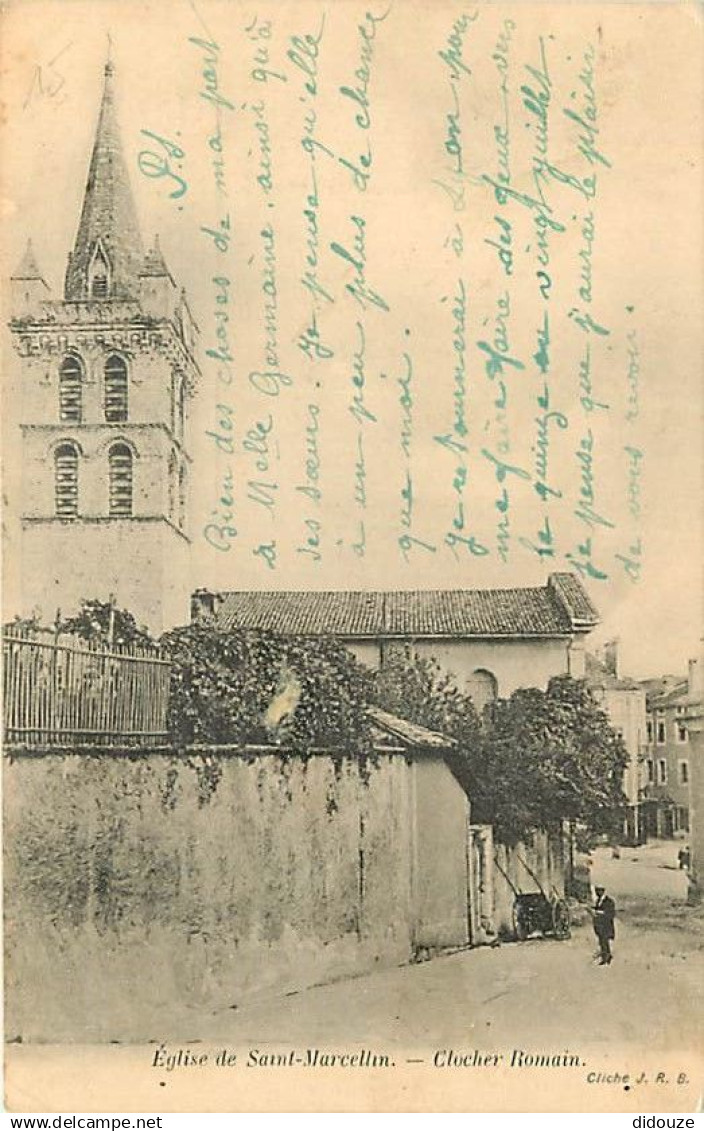 P.S.
Bien des choses de ma part
à Melle Germaine, ainsi qu'à
ses sœurs. Je pense qu'elle
à un peu plus de chance
que moi.
Je retournerai à Lyon pour
me faire faire des yeux vers
le quinze ou vingt juillet.
je pense que j'aurai le plaisir
de vous revoir.
Église de Saint-Marcellin. — Clocher Romain.
Cliché J. R. B.
didouze